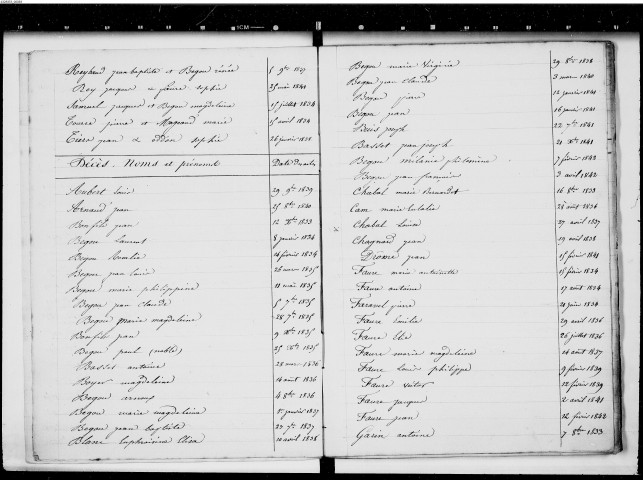 Reybaud jean baptiste et Begou rénée 5 9bre 1837
Rey jacques et faure sophie 25 mai 1841
Samuel jacques et Begou magdeleine 15 juillet 1834
Tourre pierre et marie 15 avril 1834
jean et sophie 26 janvier 1835
Décès. Noms et prénoms Date
Aubert louis 29 9bre 1839
Arnaud jean 25 8bre 1840
Bonfils jean 12 Xbre 1833
Begou laurent 8 janvier 1834
Begou 14 février 1834
Begou jean louis 26 mars 1835
Begou marie philippine 11 mai 1835
Begou jean claude 5 7bre 1835
Begou marie magdeleine 28 7bre 1835
Bonfils jean 9 Xbre 1835
Begou paul (noble) 25 Xbre 1835
Basset antoine 28 mars 1836
Boyer magdeleine 14 août 1836
Begou 4 8bre 1836
Begou marie magdeleine 15 janvier 1837
Begou jean baptiste 27 7bre 1837
Blanc euphroisine Eliza 10 avril 1838
Begou marie Virginie 29 8bre 1838
Begou jean claude 3 mars 1840
Begou pierre 12 janvier 1841
Begou jean 16 janvier 1841
joseph 22 7bre 1841
Basset jean joseph 21 Xbre 1841
Begou mélanie philomène 7 février 1842
Begou jean francois 3 avril 1842
Chabal marie 16 8bre 1833
Cam marie eulalie 28 août 1836
Chabal Louise 27 avril 1837
Chagnard jean 19 avril 1838
Drome jean 15 février 1841
Faure marie antoinette 15 février 1834
Faure antoine 17 août 1834
Faravel pierre 21 juin 1834
Faure Emilie 29 avril 1836
Faure Elie 26 juillet 1836
Faure marie magdeleine 14 août 1837
Faure Louis philippe 9 février 1839
Faure victor 22 février 1839
Faure jacques 2 avril 1841
Faure jean 12 février 1842
Garin antoine 7 8bre 1833